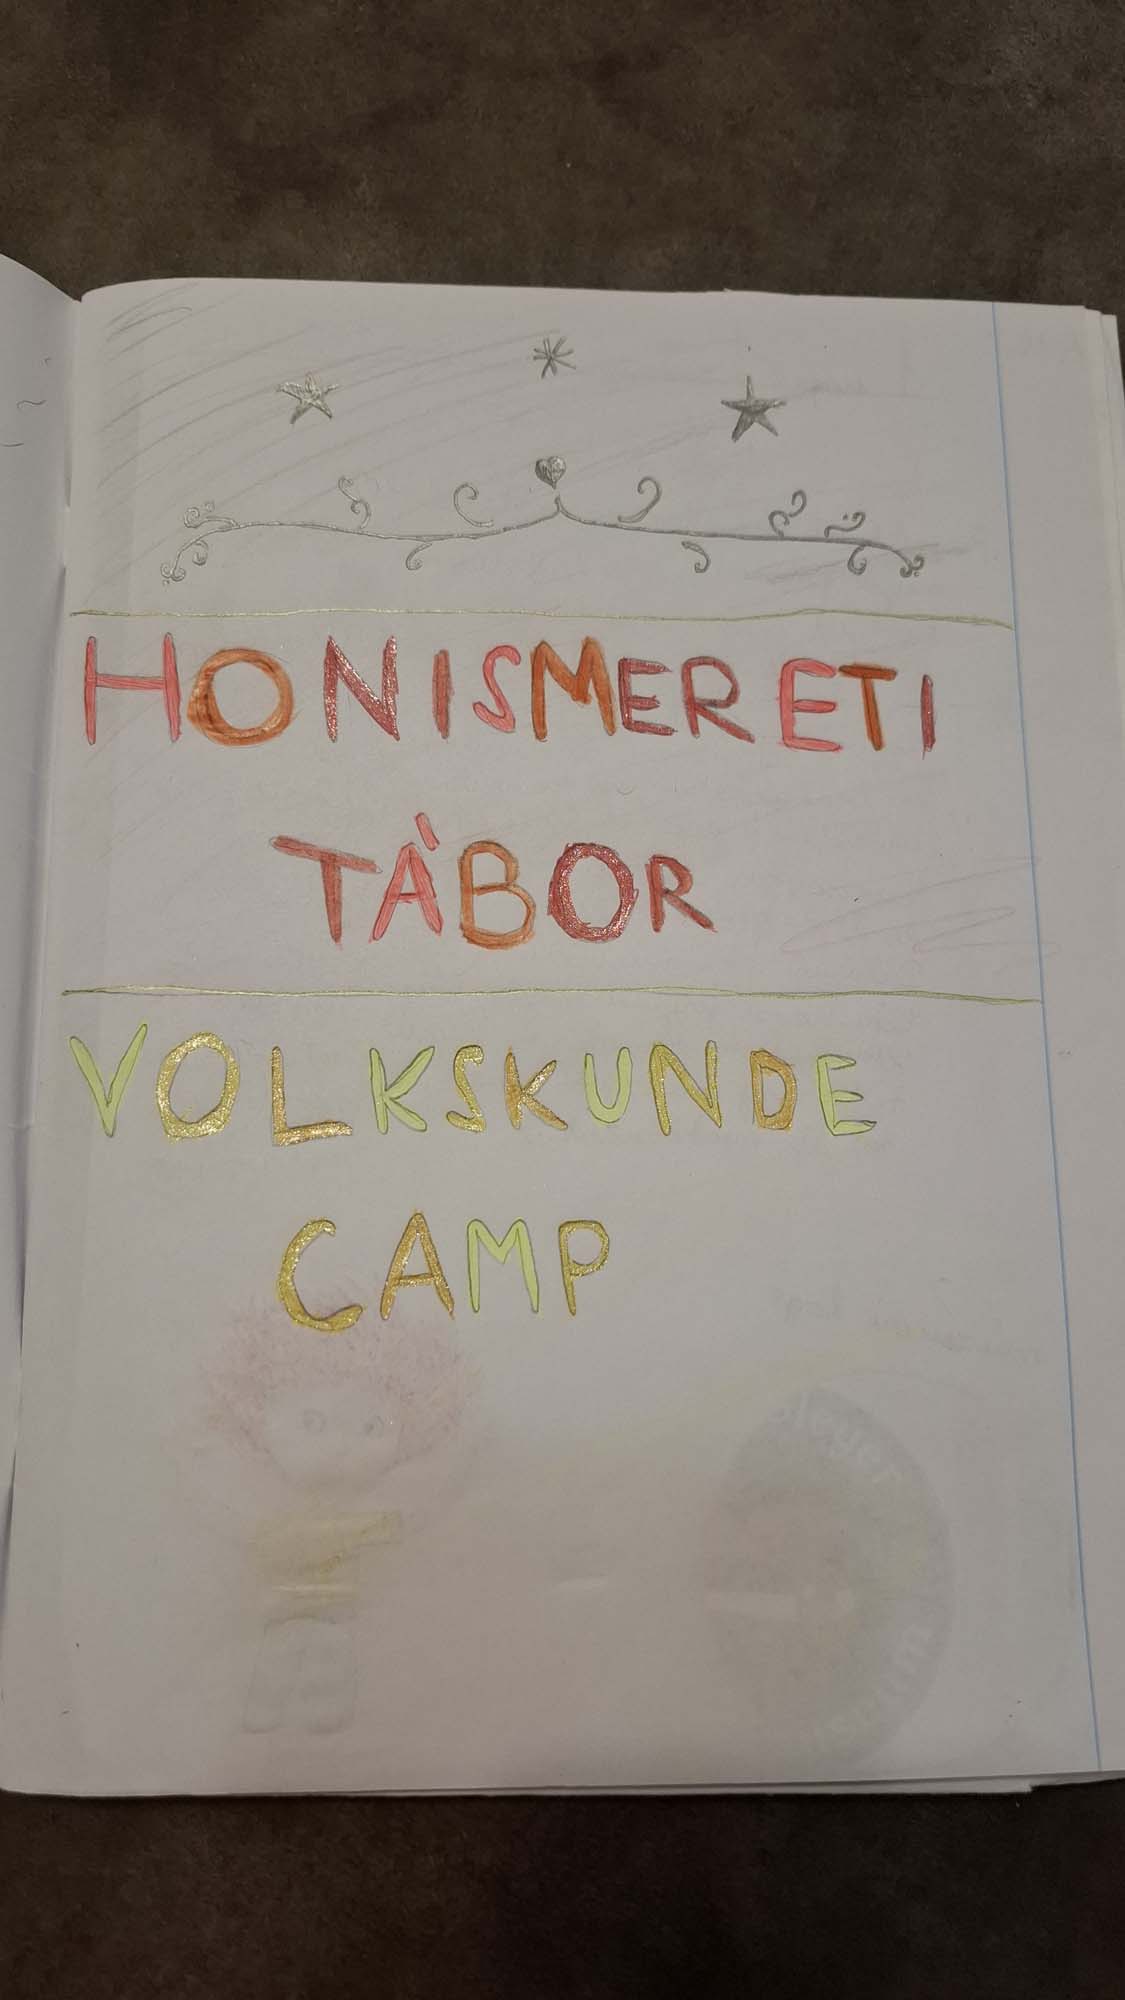 HONISMERETI
TÀBOR
VOLKSKUNDE
CAMP